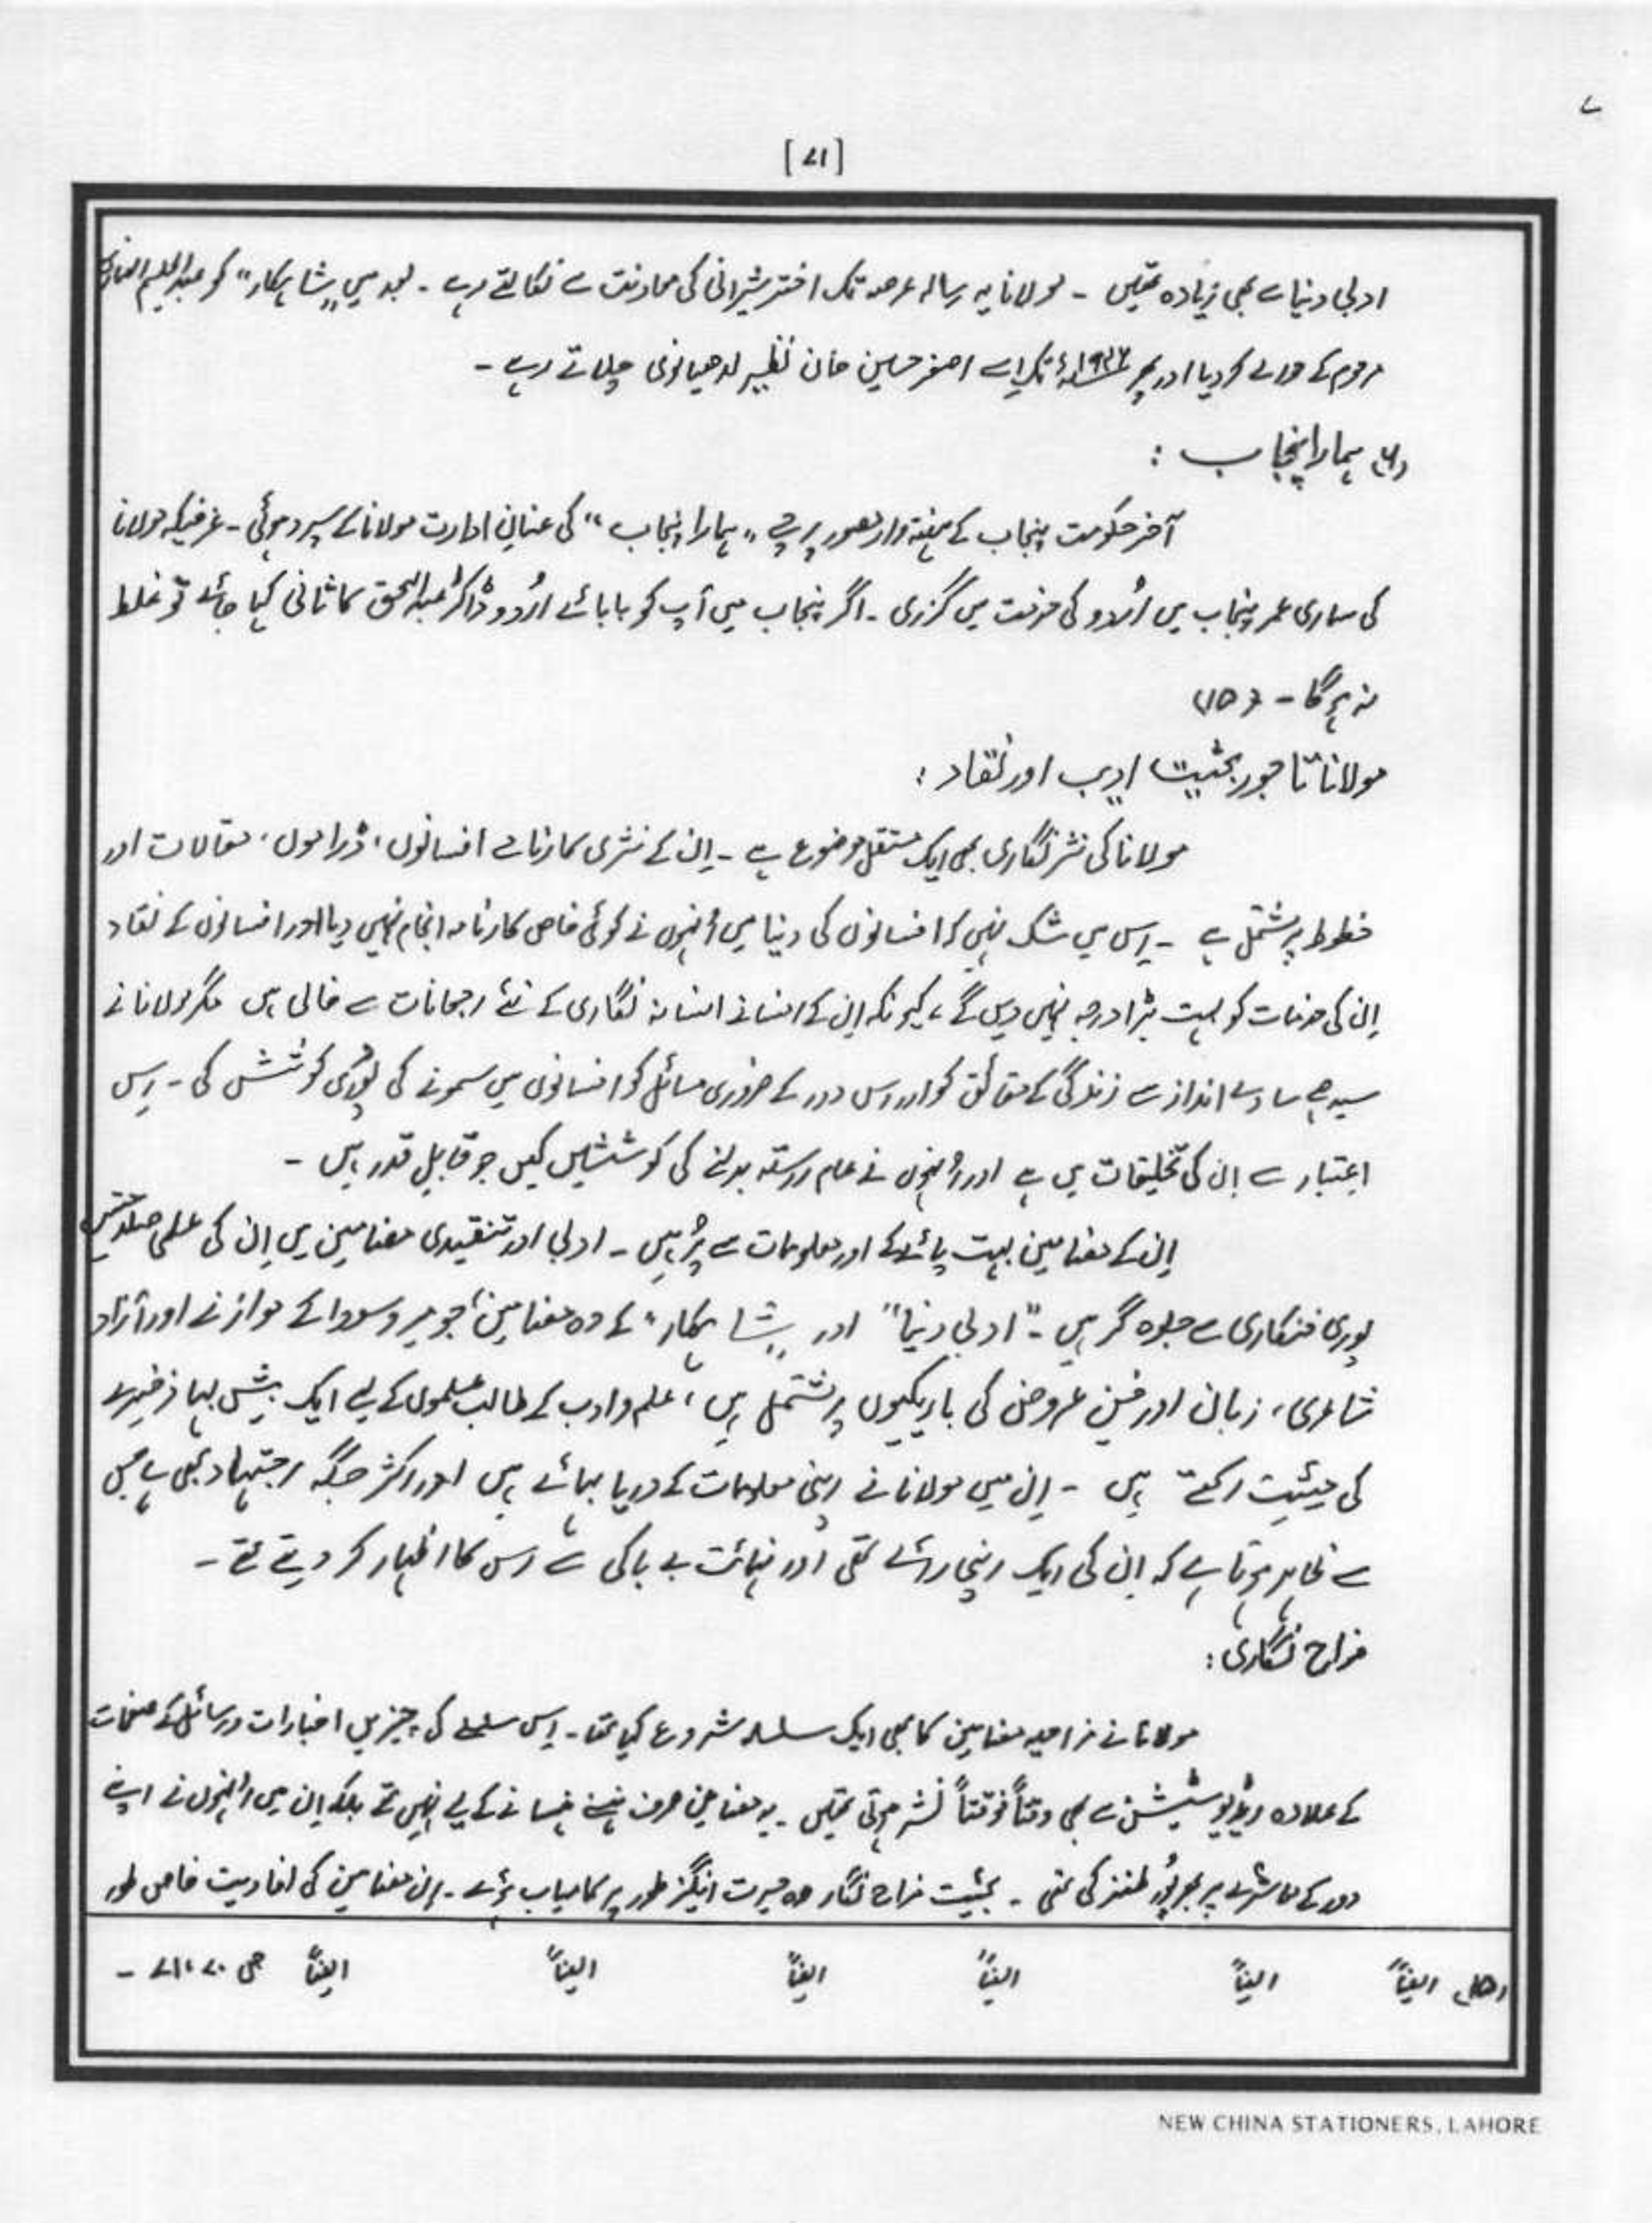 [۷۱]
ادبی دنیا سے بھی زیادہ تھیں ۔ مولانا یہ رسالہ عرصہ تک اختر شیرانی کی معاونت سے نکالتے رہے ۔ بعد میں "شاہکار" کو
مرحوم کے حوالے کر دیا اور پھر تک اسے اصغر حسین خان نظیر لدھیانوی چلاتے رہے ۔
ہمارا پنجاب :
آخر حکومت پنجاب کے ہفتہ وار مصور پرچے "ہمارا پنجاب" کی عنانِ ادارت مولانا کے سپرد ہوئی ۔ غرضیکہ مولانا
کی ساری عمر پنجاب میں اُردو کی خدمت میں گزری ۔ اگر پنجاب میں آپ کو بابائے اُردو ڈاکٹر عبدالحق کا ثانی کہا جائے تو غلط
نہ ہوگا ۔ (۱۵)
مولانا تاجور بحثیت ادیب اور نقاد :
مولانا کی نثر نگاری بھی ایک مستقل موضوع ہے ۔ اِن کے نثری کارنامے افسانوں، ڈراموں، مقالات اور
خطوط پر مشتمل ہے ۔ اِس میں شک نہیں کہ افسانوں کی دنیا میں اُنہوں نے کوئی خاص کارنامہ انجام نہیں دیا اور افسانوں کے نقاد
اِن کی خدمات کو بہت بڑا درجہ نہیں دیں گے، کیونکہ اِن کے افسانے افسانہ نگاری کے نئے رجحانات سے خالی ہیں مگر مولانا نے
سیدھے سادے انداز سے زندگی کے حقائق کو اور اس دور کے ضروری مسائل کو افسانوں میں سمونے کی پوری کوشش کی ۔ اِس
اعتبار سے اِن کی تخلیقات میں ہے اور اُنہوں نے عام رستہ بدلنے کی کوششیں کیں جو قابلِ قدر ہیں ۔
اِن کے مضامین بہت پائے کے اور معلومات سے پُر ہیں ۔ ادبی اور تنقیدی مضامین میں اِن کی علمی صلاحیتیں
پوری فنکاری سے جلوہ گر ہیں ۔ "ادبی دنیا" اور "شاہکار" کے وہ مضامین جو میر و سودا کے موازنے اور آزاد
شاعری، زبان اور فنِ عروض کی باریکیوں پر مشتمل ہیں، علم و ادب کے طالب علموں کے لیے ایک بیش بہا ذخیرے
کی حیثیت رکھتے ہیں ۔ اِن میں مولانا نے اپنی معلومات کے دریا بہائے ہیں اور اکثر جگہ اجتہاد بھی ہے جس
سے ظاہر ہوتا ہے کہ اِن کی ایک اپنی رائے تھی اور نہائت بے باکی سے اس کا اظہار کر دیتے تھے ۔
مزاح نگاری :
مولانا نے مزاحیہ مضامین کا بھی ایک سلسلہ شروع کیا تھا ۔ اِس سلسلے کی چیزیں اخبارات و رسائل کے صفحات
کے علاوہ ریڈیو سٹیشن سے بھی وقتاً فوقتاً نشر ہوتی تھیں ۔ یہ مضامین صرف ہنسنے ہنسانے کے لیے نہیں تھے بلکہ اِن میں اُنہوں نے اپنے
دور کے معاشرے پر بھرپُور طنز کی تھی ۔ بحثیت مزاح نگار وہ حیرت انگیز طور پر کامیاب ہوئے ۔ اِن مضامین کی افادیت خاص طور
(۱۵) ایضاً ایضاً ایضاً ایضاً ایضاً ایضاً ص ۷۰، ۷۱ ۔
NEW CHINA STATIONERS, LAHORE